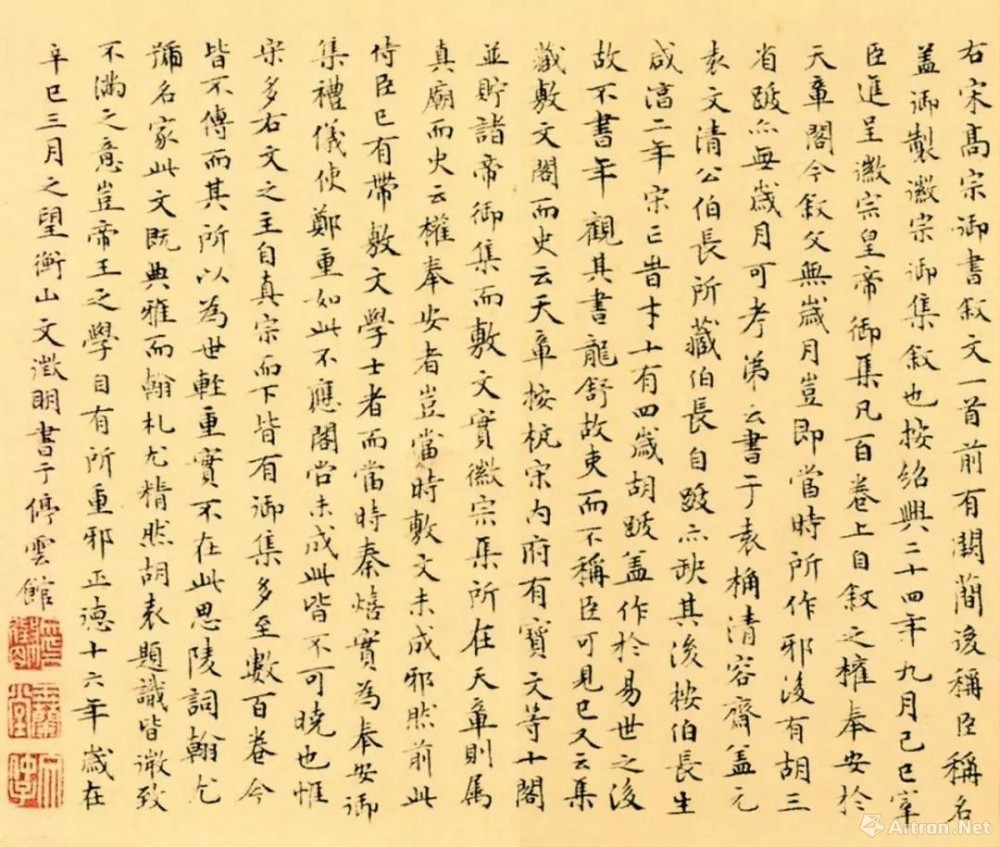 右宋高宗御書叙文一首前有闕簡後稱臣稱名
盖御製徽宗御集叙也按紹興二十四年九月己巳宰
臣進呈徽宗皇帝御集凡百卷上自叙之權奉安於
天章閣今叙父無歲月豈即當時所作邪後有胡三
省跋亦無歲月可考第云書于袁桷清容齋盖元
袁文清公伯長所藏伯長自跋亦缺其後桉伯長生
咸淳二年宋亡昔才十有四歲胡跋盖作於易世之後
故不書年觀其書龍舒故吏而不稱臣可見已又云集
藏敷文閣而史云天章按杭宋内府有寶文等十閣
並貯諸帝御集而敷文實徽宗集所在天章則属
真廟而史云權奉安者豈當時敷文未成邪然前此
侍臣已有帶敷文學士者而當時秦熺實為奉安御
集禮儀使鄭重如此不應閣尚未成此皆不可曉也惟
宋多右文之主自真宗而下皆有御集多至數百卷今
皆不傳而其所以為世輊重實不在此思陵詞翰尤
號名家此文既典雅而翰札尤精然胡袁題識皆微致
不滿之意豈帝王之學自有所重邪正德十六年歲在
辛巳三月之望衡山文徵明書于停雲館
Artron.Net